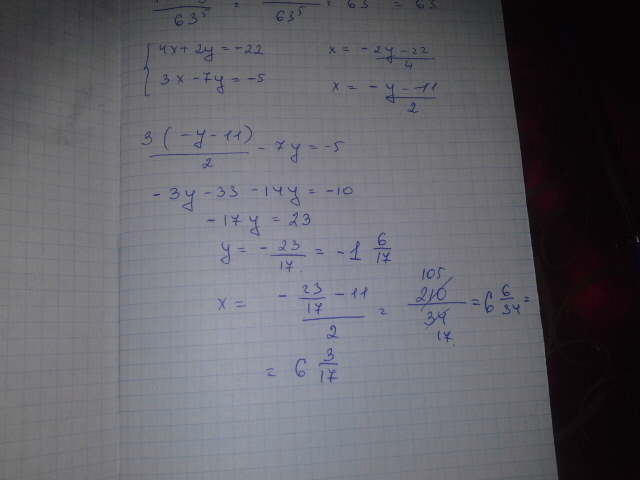 63⁵ = 63⁵ = 63 = 63
4x + 2y = -22 x = (-2y - 22)/4
3x - 7y = -5 x = (-y - 11)/2
3(-y - 11)/2 - 7y = -5
-3y - 33 - 14y = -10
-17y = 23
y = -23/17 = -1 6/17
x = (-23/17 - 11)/2 = 105 210/34 17 = 6 6/34 =
= 6 3/17